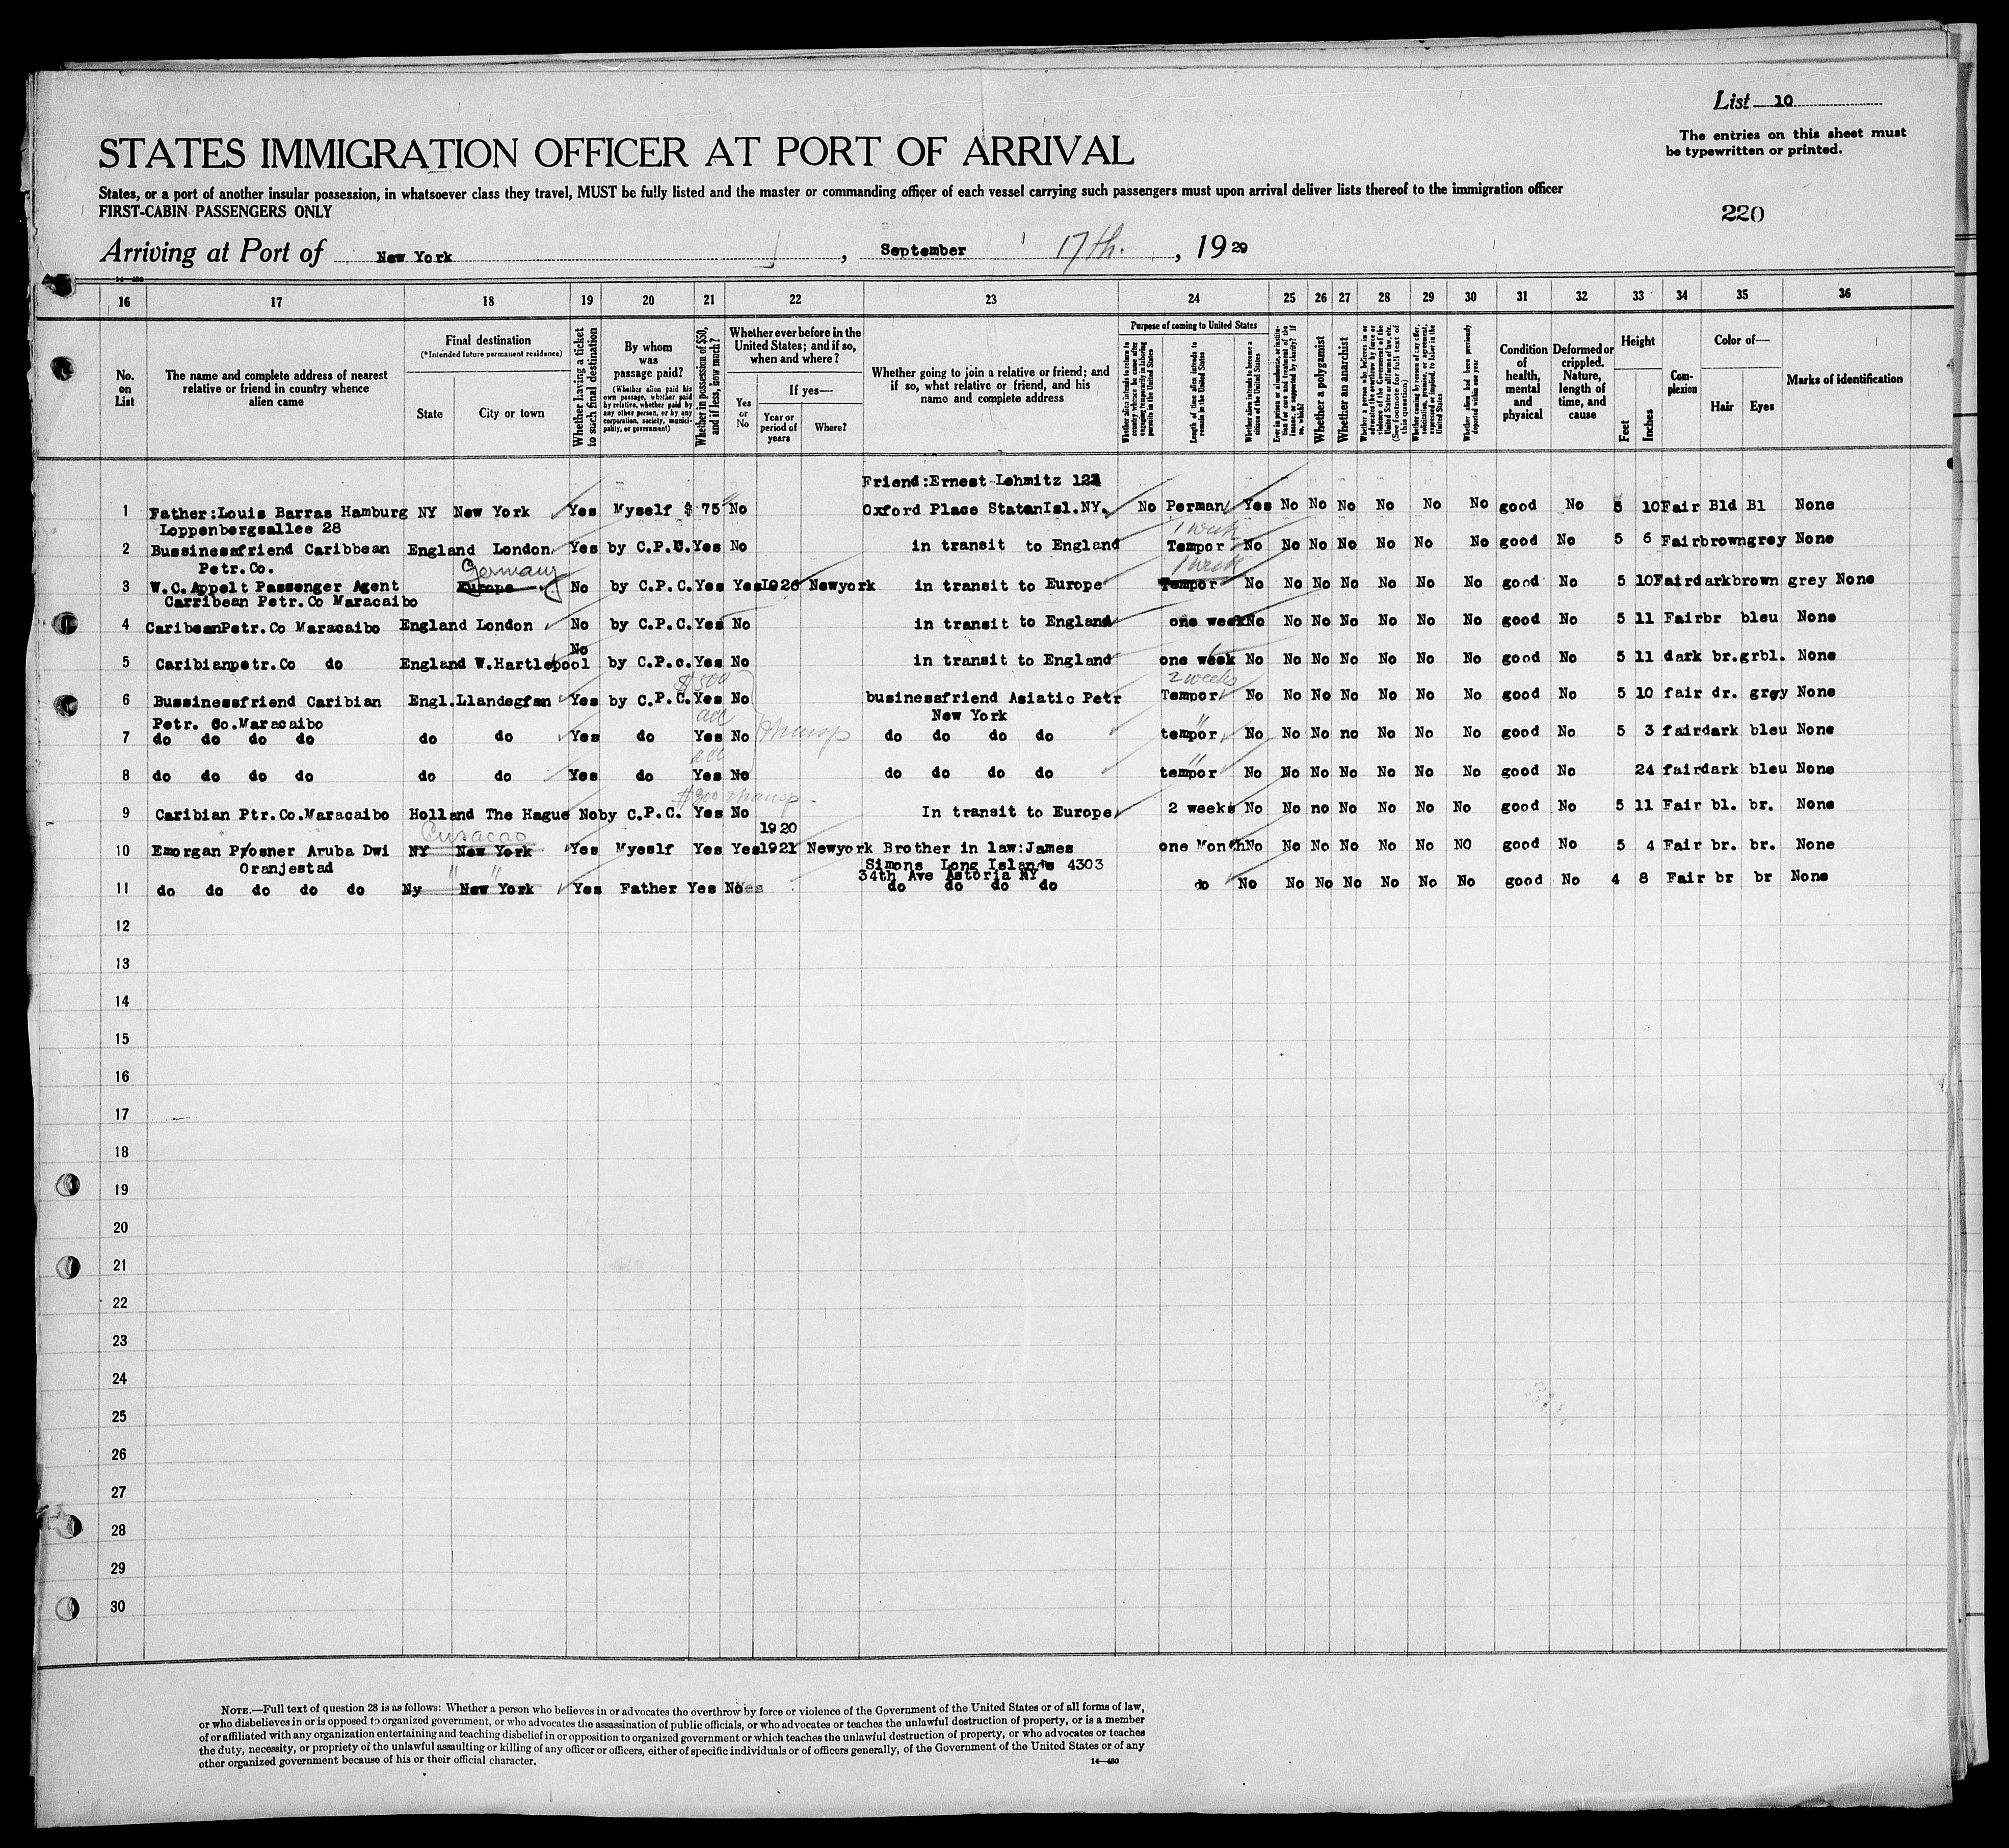 List 10
The entries on this sheet must
be typewritten or printed.
STATES IMMIGRATION OFFICER AT PORT OF ARRIVAL
States, or a port of another insular possession, in whatsoever class they travel, MUST be fully listed and the master or commanding officer of each vessel carrying such passengers must upon arrival deliver lists thereof to the immigration officer
FIRST-CABIN PASSENGERS ONLY
220
Arriving at Port of New York, September 17th., 1929
16 17 18 19 20 21 22 23 24 25 26 27 28 29 30 31 32 33 34 35 36
No. on List
The name and complete address of nearest relative or friend in country whence alien came
Final destination
(*Intended future permanent residence)
State
City or town
Whether having a ticket to such final destination
By whom was passage paid?
(Whether alien paid his own passage, whether paid by relative, whether paid by any other person, or by any corporation, society, municipality, or government)
Whether in possession of $50, and if less, how much?
Whether ever before in the United States; and if so, when and where?
Yes or No
If yes—
Year or period of years
Where?
Whether going to join a relative or friend; and if so, what relative or friend, and his name and complete address
Purpose of coming to United States
Whether alien intends to return to country whence he came after engaging temporarily in laboring pursuits in the United States
Length of time alien intends to remain in the United States
Whether alien intends to become a citizen of the United States
Ever in prison or almshouse, or institution for care and treatment of the insane, or supported by charity? If so, which?
Whether a polygamist
Whether an anarchist
Whether a person who believes in or advocates the overthrow by force or violence of the Government of the United States or all forms of law, etc. (See footnote for full text of this question)
Whether coming by reason of any offer, solicitation, promise, or agreement, expressed or implied, to labor in the United States
Whether alien had been previously deported within one year
Condition of health, mental and physical
Deformed or crippled. Nature, length of time, and cause
Height
Feet
Inches
Complexion
Color of—
Hair
Eyes
Marks of identification
Friend:Ernest Lehmitz 121
1 Father:Louis Barras Hamburg NY New York Yes Myself $ 75 No Oxford Place StatanIsl.NY. No Perman Yes No No No No No No good No 5 10 Fair Bld Bl None
Loppenbergsallee 28
1 week
2 Bussinessfriend Caribbean England London Yes by C.P.C. Yes No in transit to England Tempor No No No No No No No good No 5 6 Fair brown grey None
Petr.Co.
Germany 1 week
3 W.C.Appelt Passenger Agent Europe No by C.P.C. Yes Yes 1926 Newyork in transit to Europe Tempor No No No No No No No good No 5 10 Fair darkbrown grey None
Carribean Petr.Co Maracaibo
4 CaribeanPetr.Co Maracaibo England London No by C.P.C. Yes No in transit to England one week No No No No No No No good No 5 11 Fair br bleu None
5 Caribianpetr.Co do England W.Hartlepool No by C.P.c. Yes No in transit to England one week No No No No No No No good No 5 11 dark br. grbl. None
$500 2 weeks
6 Bussinessfriend Caribian Engl. Llandegfan Yes by C.P.C. Yes No businessfriend Asiatic Petr Tempor No No No No No No No good No 5 10 fair dr. grey None
Petr. Co.Maracaibo New York
7 do do do do do do Yes do Yes No transp do do do do tempor No No No no No No No good No 5 3 fair dark bleu None
8 do do do do do do Yes do Yes No do do do do tempor No No No No No No No good No 24 fair dark bleu None
$300 transp.
9 Caribian Ptr.Co.Maracaibo Holland The Hague No by C.P.C. Yes No In transit to Europe 2 weeks No No no No No No No good No 5 11 Fair bl. br. None
Curacao 1920
10 Emorgan Posner Aruba Dwi NY New York Yes Myeslf Yes Yes 1921 Newyork Brother in law:James one Month No No No No No No NO good No 5 4 Fair br. br. None
Oranjestad Simons Long Islands 4303
34th Ave Astoria NY
11 do do do do do Ny New York Yes Father Yes No Yes do do do do do No No No No No No No good No 4 8 Fair br br None
12
13
14
15
16
17
18
19
20
21
22
23
24
25
26
27
28
29
30
NOTE.—Full text of question 28 is as follows: Whether a person who believes in or advocates the overthrow by force or violence of the Government of the United States or of all forms of law,
or who disbelieves in or is opposed to organized government, or who advocates the assassination of public officials, or who advocates or teaches the unlawful destruction of property, or is a member
of or affiliated with any organization entertaining and teaching disbelief in or opposition to organized government or which teaches the unlawful destruction of property, or who advocates or teaches
the duty, necessity, or propriety of the unlawful assaulting or killing of any officer or officers, either of specific individuals or of officers generally, of the Government of the United States or of any
other organized government because of his or their official character.
14—480